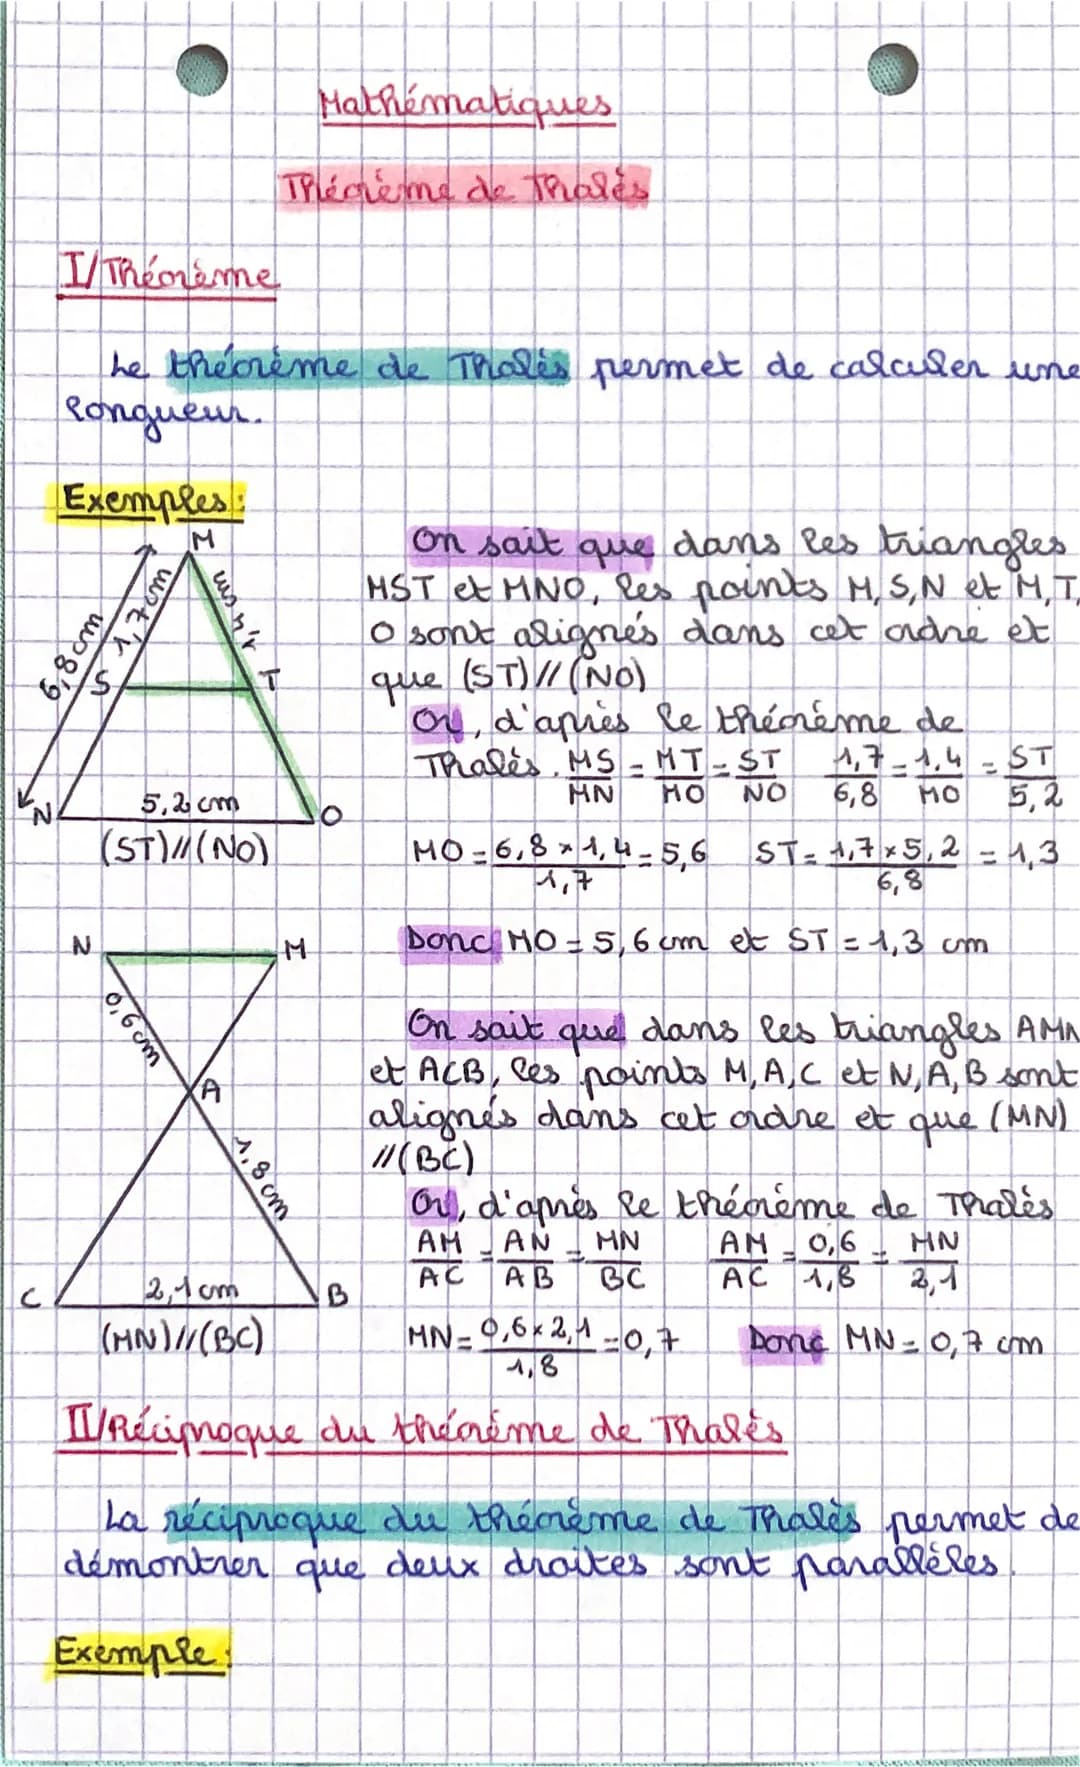 Mathématiques
Théorème de Thalès
I/ Théorème
Le théorème de Thalès permet de calculer une
longueur.
Exemples:
M
6,8cm
1,7cm
1,4 cm
S
T
N
5,2 cm
O
(ST)//(NO)
On sait que dans les triangles
MST et MNO, les points M,S,N et M,T,
O sont alignés dans cet ordre et
que (ST)//(NO)
Or, d'après le théorème de
Thalès. MS/MN = MT/MO = ST/NO 1,7/6,8 = 1,4/MO = ST/5,2
MO = 6,8 × 1,4/1,7 = 5,6 ST = 1,7 × 5,2/6,8 = 1,3
Donc MO = 5,6 cm et ST = 1,3 cm
N
M
0,6cm
A
1,8cm
C
2,1cm
B
(MN)//(BC)
On sait que dans les triangles AMN
et ACB, les points M,A,C et N,A,B sont
alignés dans cet ordre et que (MN)
//(BC)
Or, d'après le théorème de Thalès
AM/AC = AN/AB = MN/BC AM/AC = 0,6/1,8 = MN/2,1
MN = 0,6 × 2,1/1,8 = 0,7 Donc MN = 0,7 cm
II/ Réciproque du théorème de Thalès
La réciproque du théorème de Thalès permet de
démontrer que deux droites sont parallèles.
Exemple: